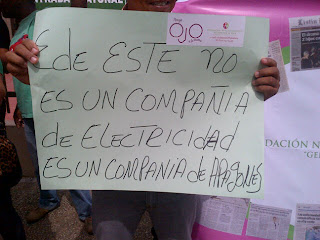 TRADA
OJO
Ede ESTE no
ES UN COMPAÑIA
de ELECTRICIDAD
ES UN COMPANIA de APAGONES
DACIÓN N